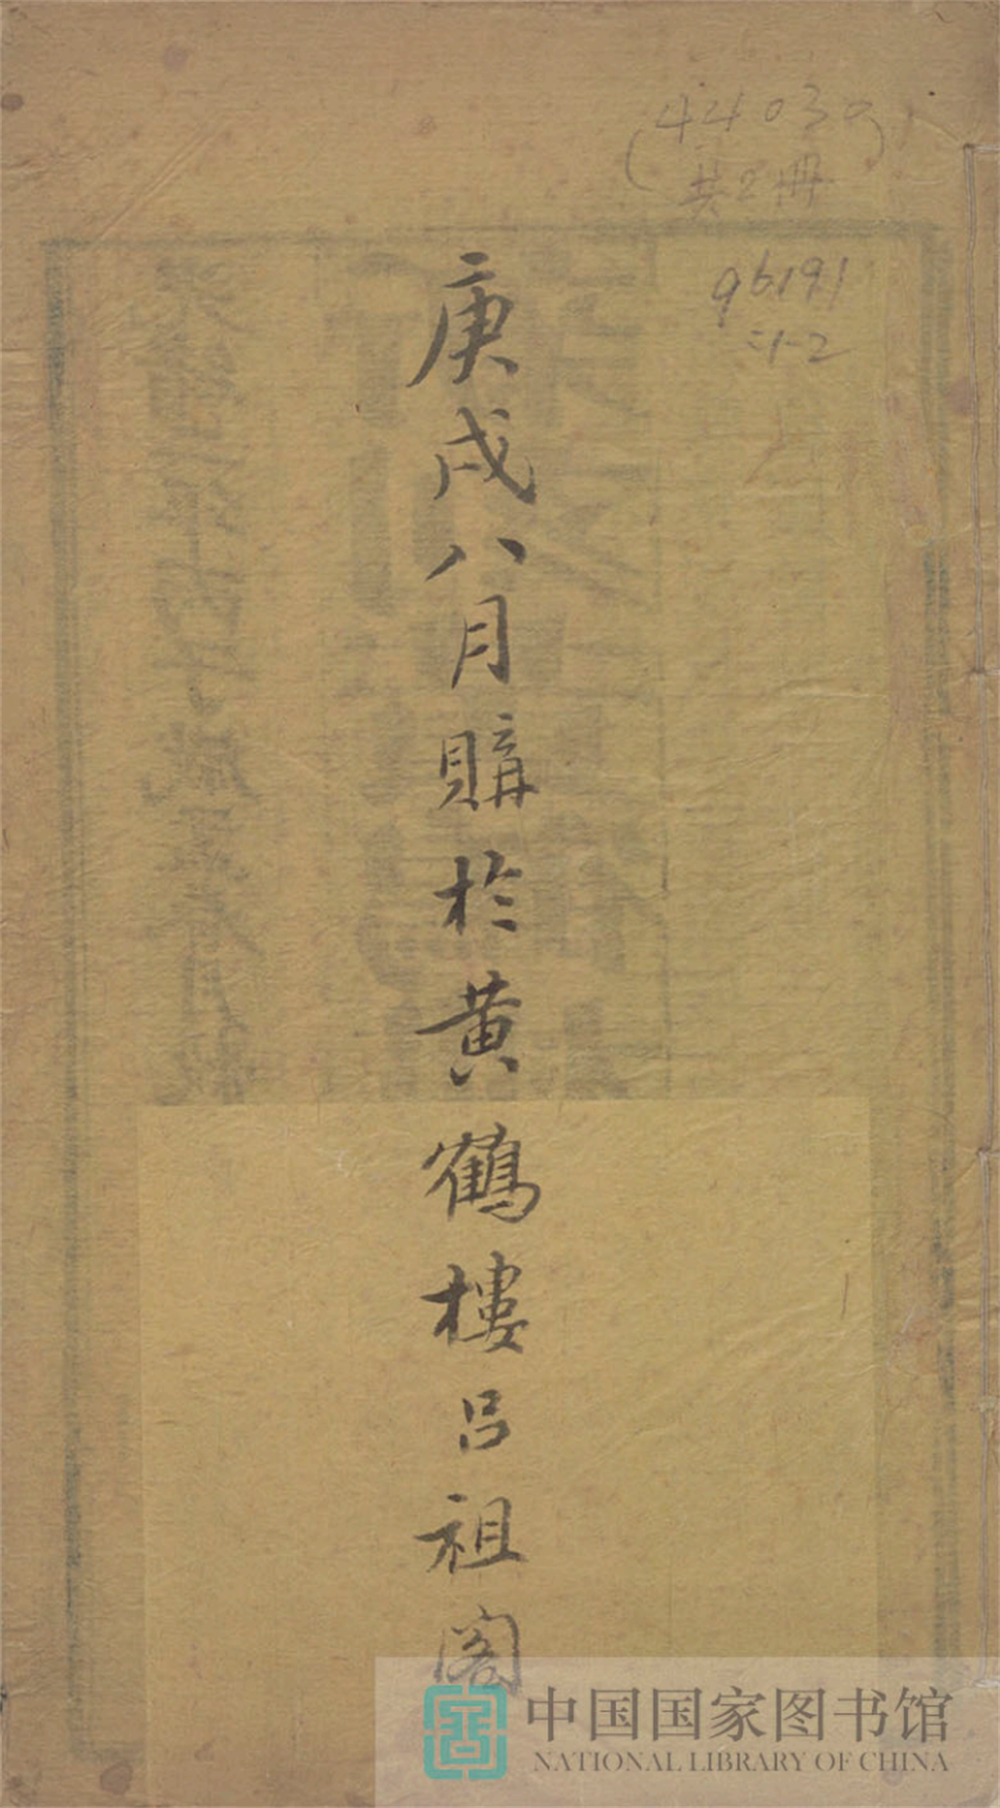 (44030)
共2冊
96191
:1-2
庚戌八月購於黄鶴樓吕祖閣
中国国家图书馆
NATIONAL LIBRARY OF CHINA